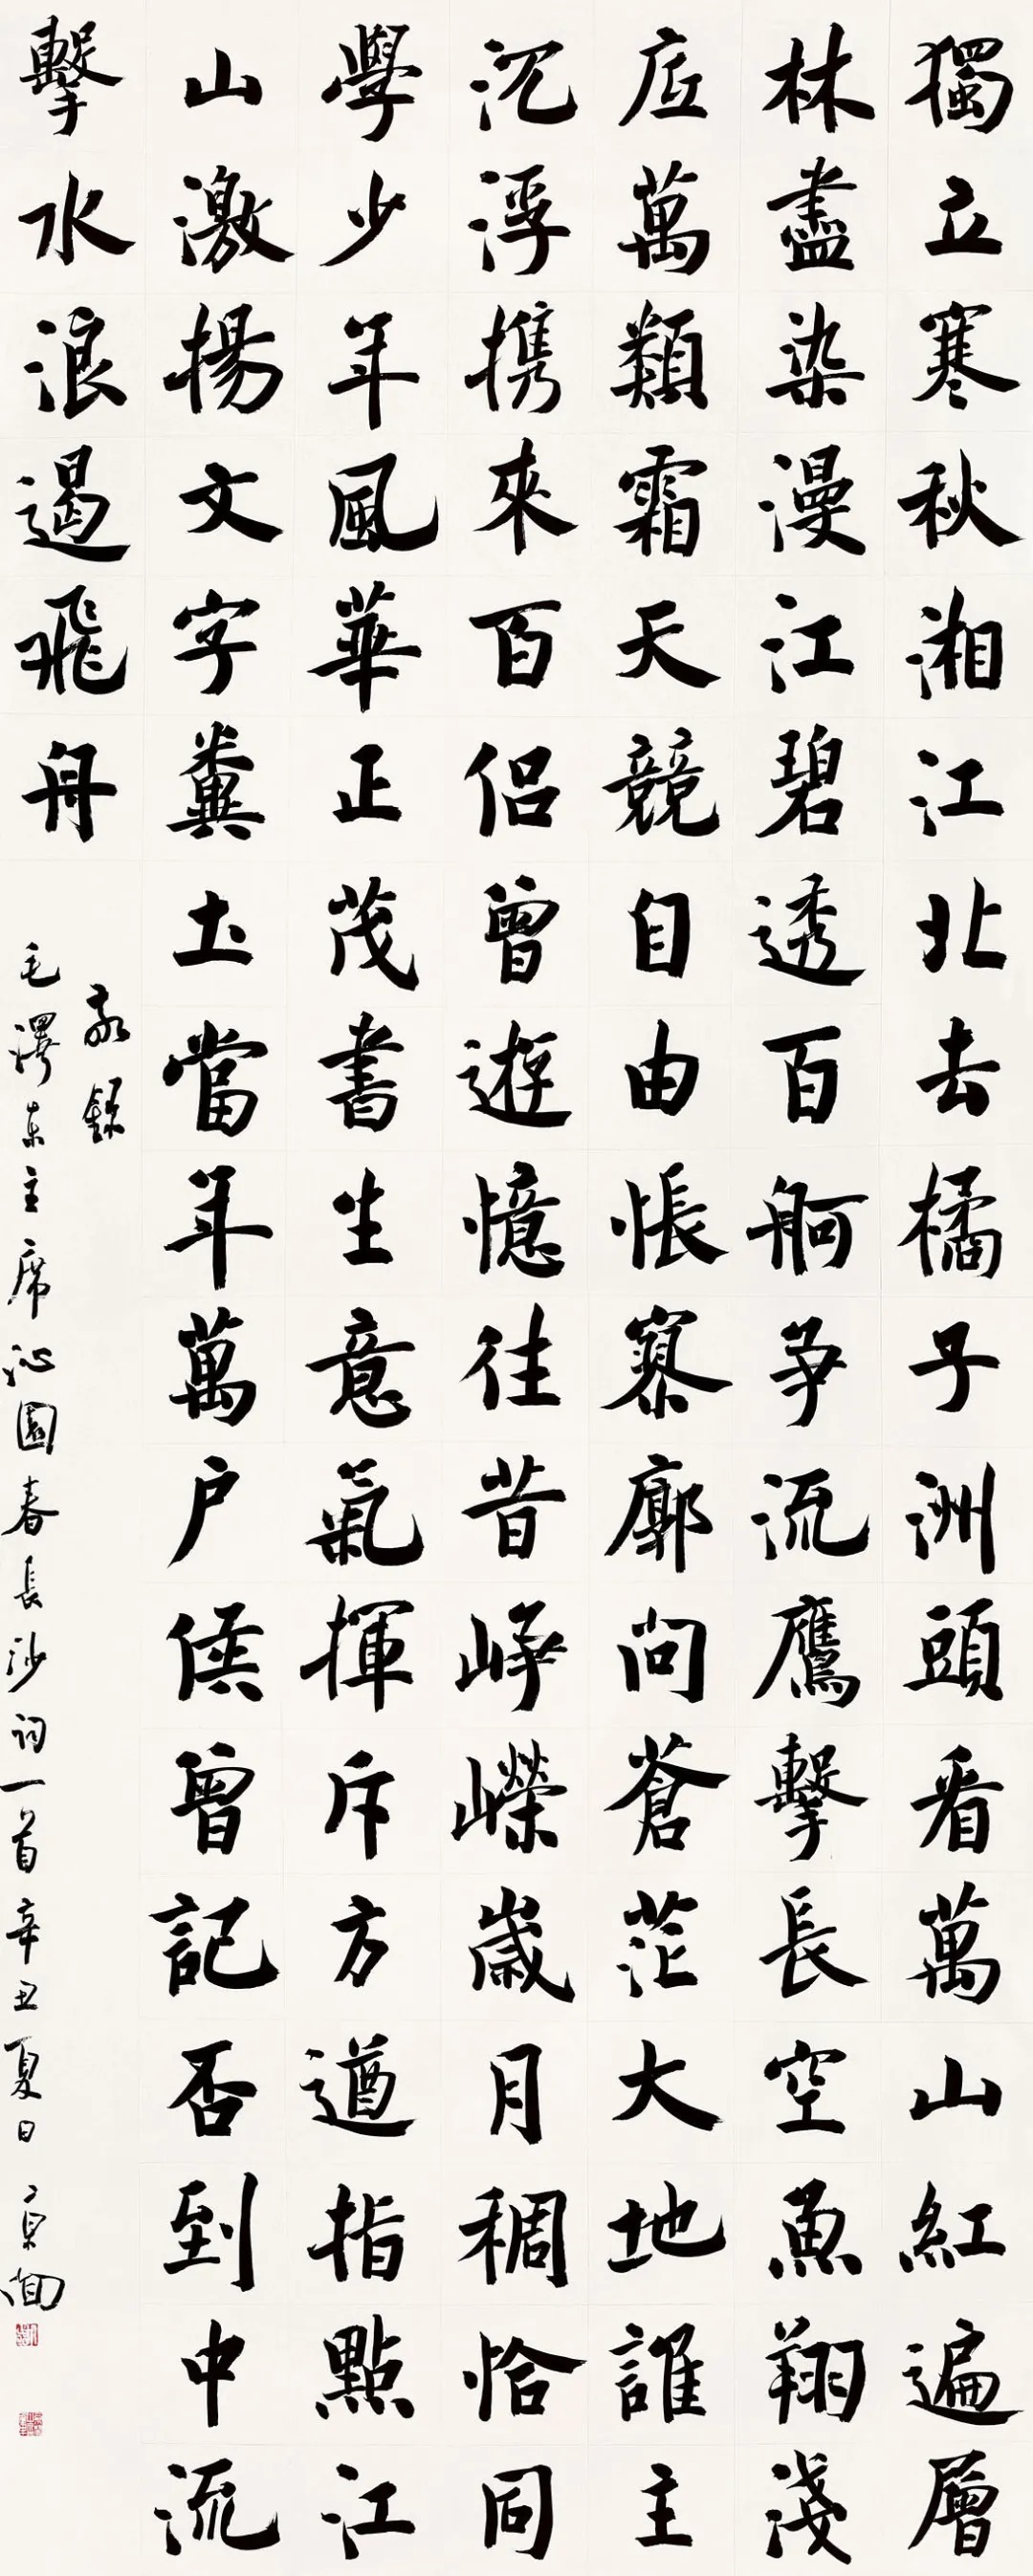 獨立寒秋湘江北去橘子洲頭看萬山紅遍層
林盡染漫江碧透百舸爭流鷹擊長空魚翔淺
底萬類霜天競自由悵寥廓問蒼茫大地誰主
沉浮携來百侣曾遊憶往昔崢嶸歲月稠恰同
學少年風華正茂書生意氣揮斥方遒指點江
山激揚文字糞土當年萬户侯曾記否到中流
擊水浪遏飛舟
敬録
毛澤東主席沁園春長沙詞一首辛丑夏日